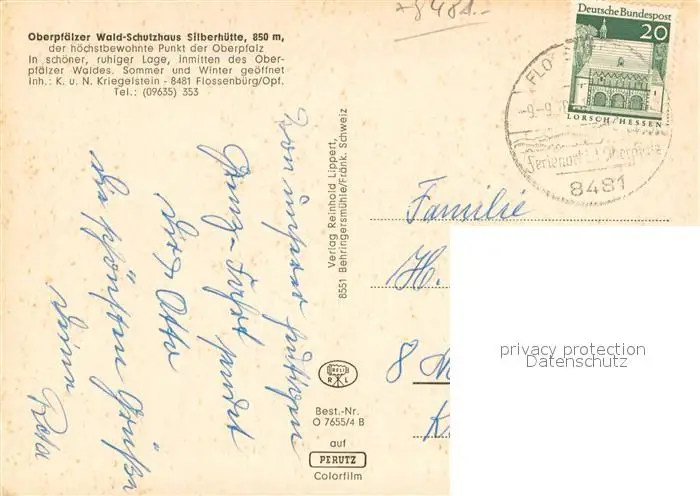 +8481.-
Oberpfälzer Wald-Schutzhaus Silberhütte, 850 m,
der höchstbewohnte Punkt der Oberpfalz
In schöner, ruhiger Lage, inmitten des Ober-
pfälzer Waldes. Sommer und Winter geöffnet
Inh.: K. u. N. Kriegelstein - 8481 Flossenbürg/Opf.
Tel.: (09635) 353
Von unserer heutigen
Grenz-Fahrt sendet
Dir Otto
die schönsten Grüße
Deine
Verlag Reinhold Lippert,
8551 Behringersmühle/Fränk. Schweiz
RELI
R L
Best.-Nr.
O 7655/4 B
auf
PERUTZ
Colorfilm
Deutsche Bundespost
20
LORSCH/HESSEN
FLO
-9.-9.
Ferienort i. d. Oberpfalz
8481
Familie
H.
8 M
K
privacy protection
Datenschutz